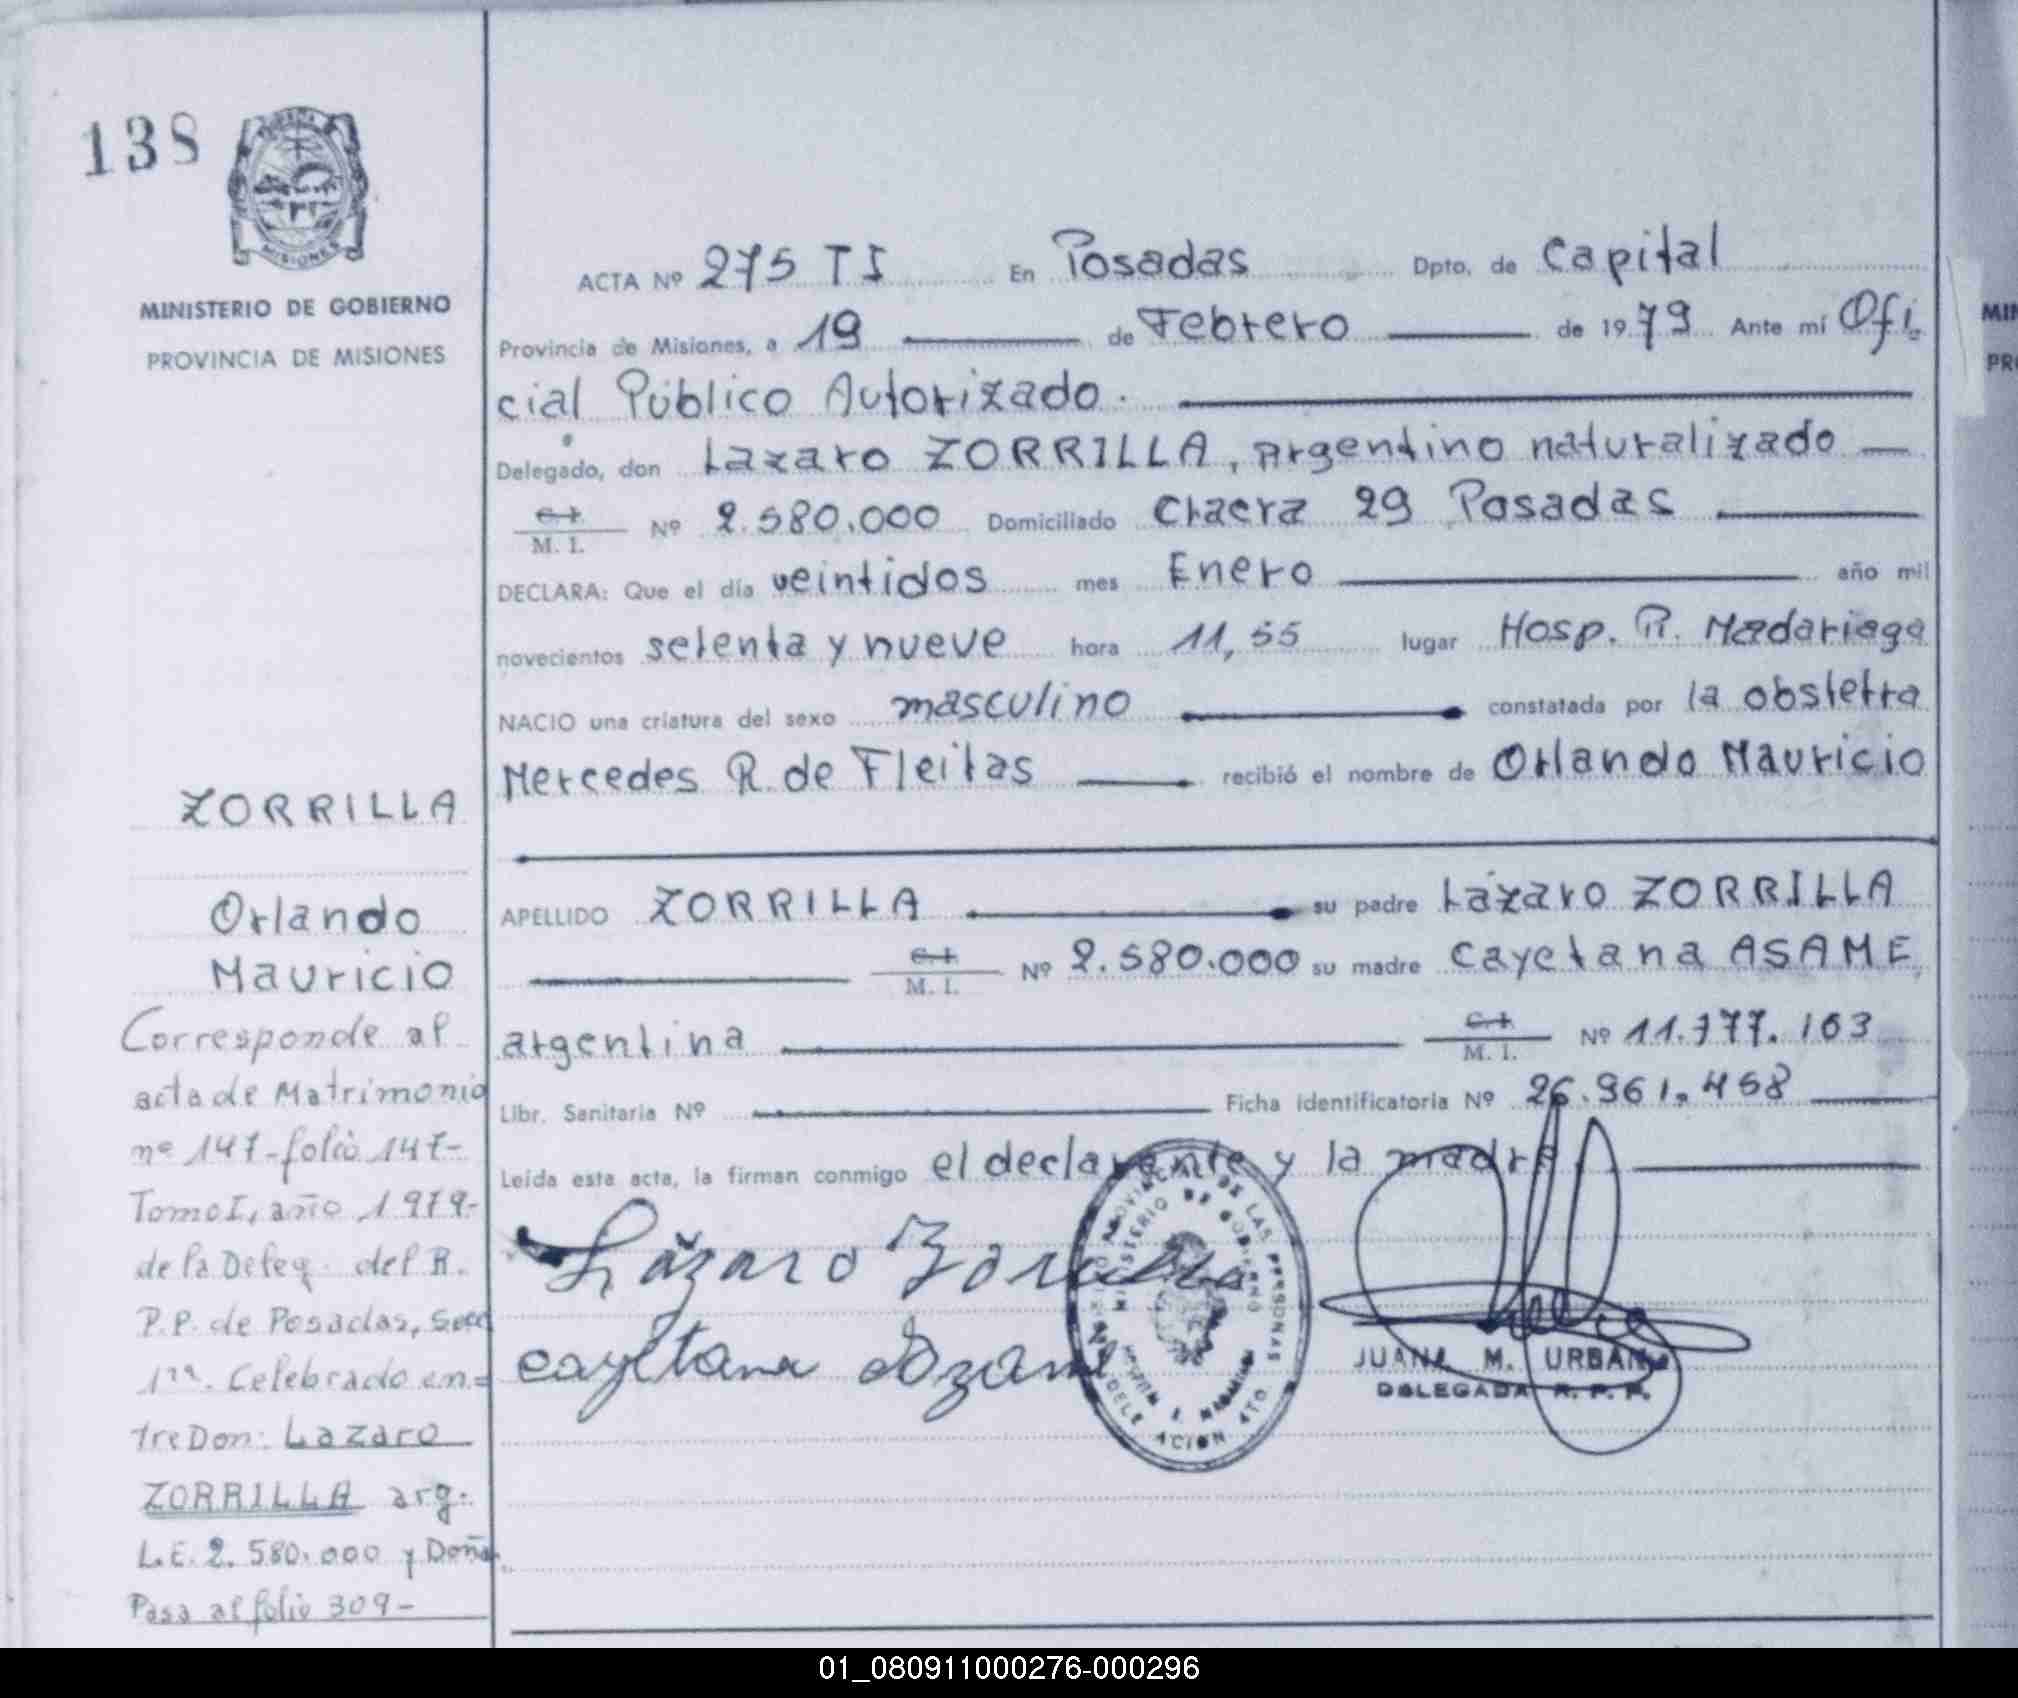 138
MISIONES
MINISTERIO DE GOBIERNO
PROVINCIA DE MISIONES
ACTA Nº 275 TI En Posadas Dpto. de Capital
Provincia de Misiones, a 19 de Febrero de 1979 Ante mí Ofi
cial Público Autorizado.
Delegado, don Lazaro ZORRILLA, argentino naturalizado
C.I. M. I. Nº 2.580.000 Domiciliado Chacra 29 Posadas
DECLARA: Que el día veintidos mes Enero año mil
novecientos setenta y nueve hora 11,55 lugar Hosp. R. Madariaga
NACIO una criatura del sexo masculino constatada por la obstetra
Mercedes R. de Fleitas recibió el nombre de Orlando Mauricio
APELLIDO ZORRILLA su padre Lázaro ZORRILLA
C.I. M. I. Nº 2.580.000 su madre Cayetana ASAME,
argentina C.I. M. I. Nº 11.777.103
Libr. Sanitaria Nº Ficha identificatoria Nº 26.961.458
Leída esta acta, la firman conmigo el declarante y la madre.
Lázaro Zorrilla
cayetana
JUANA M. URBAN
DELEGADA R. P. P.
ZORRILLA
Orlando
Mauricio
Corresponde al
acta de Matrimonio
nº 147-folio 147-
Tomo I, año 1979-
de la Deleg. del R.
P.P. de Posadas, Secc
1ra. Celebrado en=
tre Don: Lazaro
ZORRILLA arg.
L.E. 2.580.000 y Doña
Pasa al folio 309-
MIN
PRO
01_080911000276-000296